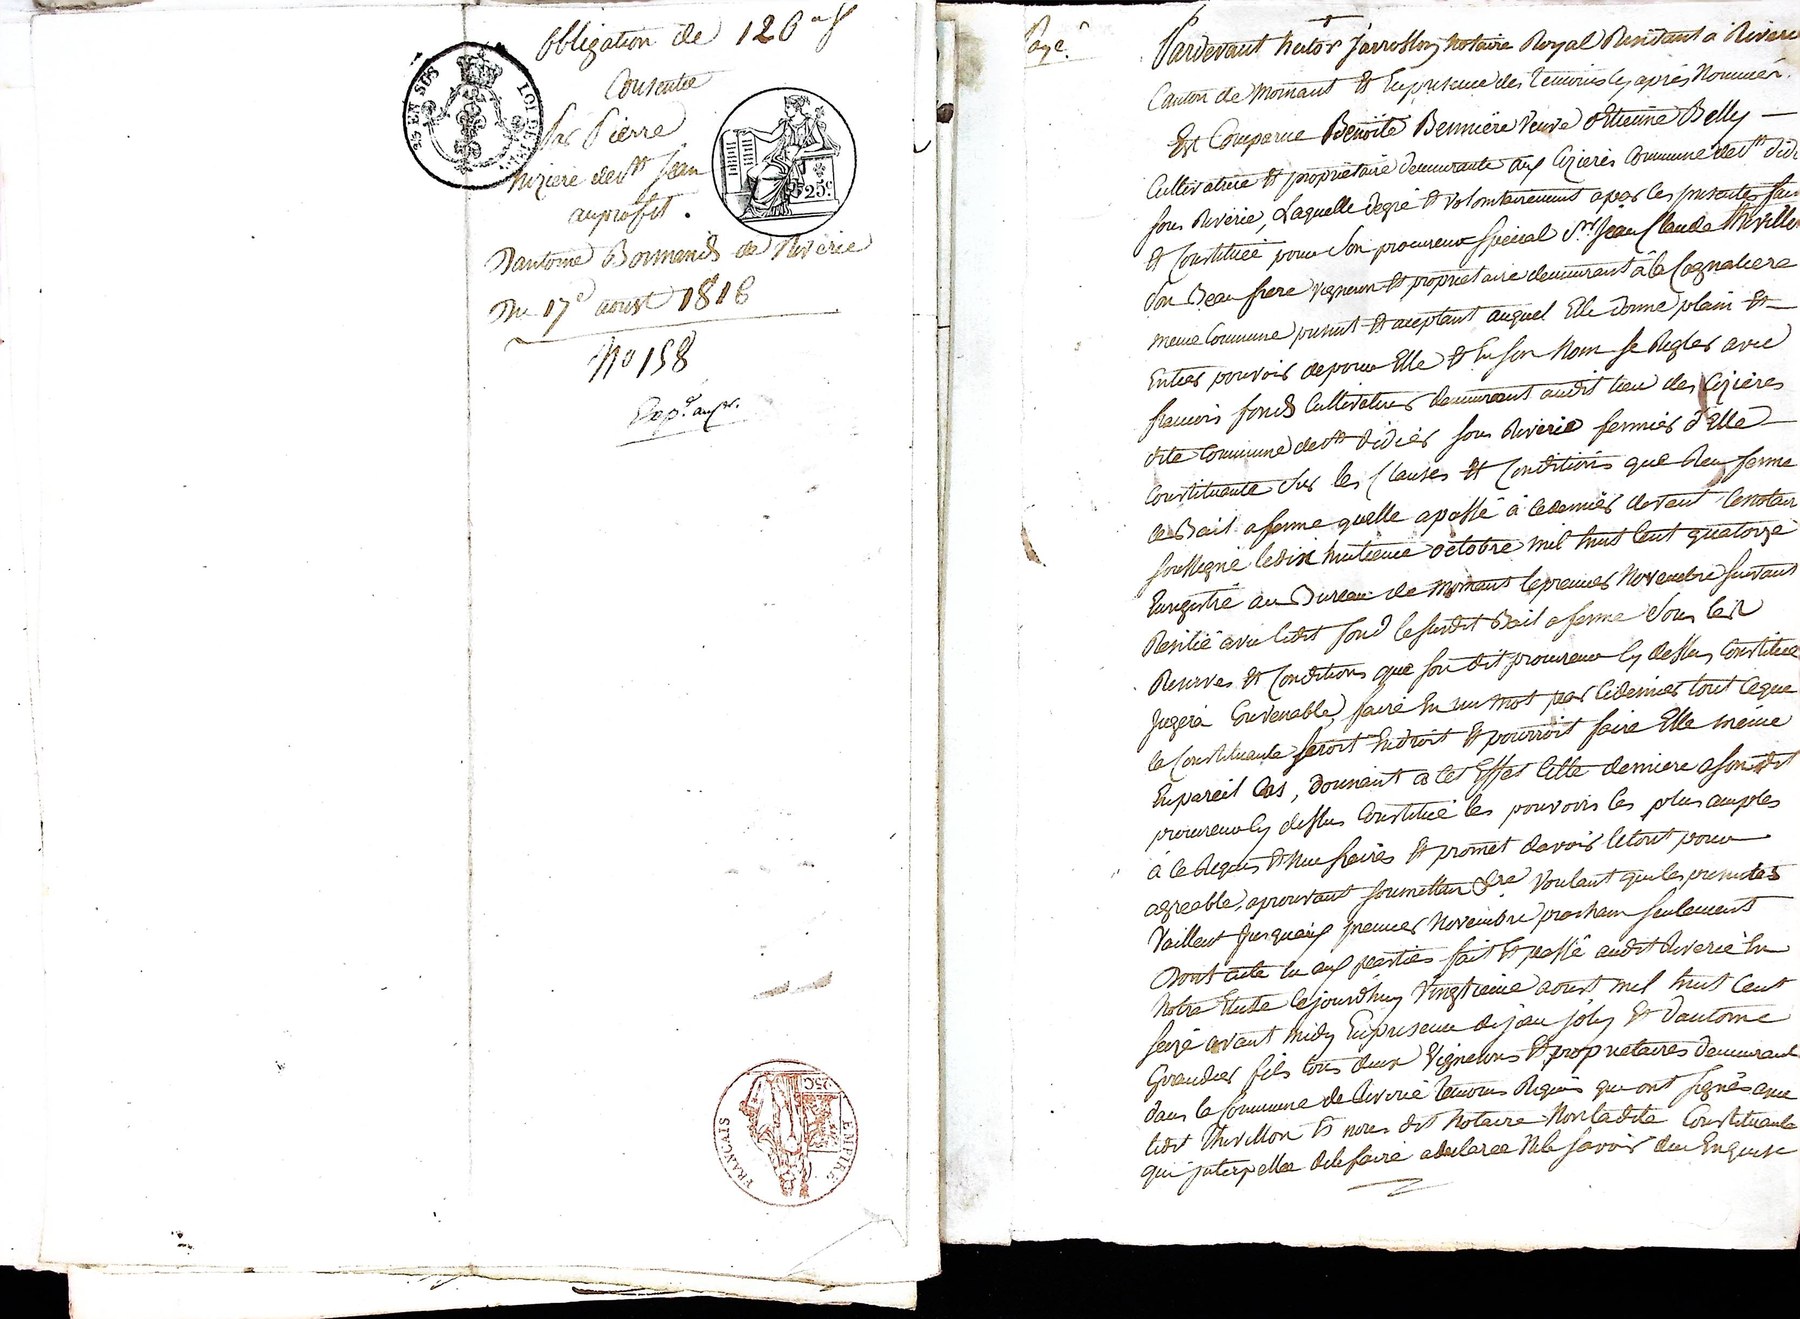 obligation de 126 f
Consentie
Par Pierre
de St Jean
au profit
D'antoine de Riverie
Du 17e aoust 1816
No 158
2e EN SUS LOI DE
25c
EMPIRE FRANÇAIS
25C
Payé
Pardevant notaire Royal Residant à Riverie
Canton de Mornant Et En presence des temoins cy après Nommés
Est Comparue Benoite Bennière veuve d'Etienne Belly
Cultivatrice Et propriétaire demeurante aux Commune de St Didi
sous Riverie, Laquelle degré Et volontairement a par les presentes fait
Et Constitué pour son procureur spécial Sr Jean Claude Thivillon
son Beau frere vigneron Et propriétaire demeurant à la
meme Commune present Et aceptant auquel Elle donne plain Et
Entier pouvoir de pour Elle Et En son Nom se Regler avec
françois fond Cultivateur demeurant audit lieu des
dite Commune de St Didier sous Riverie fermier d'Elle
Constituante sur les Clauses Et Conditions que
le Bail a ferme quelle a passé à ce dernier devant le notaire
soussigné le dix huitieme octobre mil huit Cent quatorze
Enregistré au Bureau de Mornant le premier Novembre suivant
Resilié avec ledit fond le susdit Bail a ferme sous les
Reserves Et Conditions que son dit procureur cy dessus Constitué
Jugera Convenable, faire En un mot par ce dernier tout ce que
la Constituante seroit En droit Et pourroit faire Elle même
En pareil Cas, donnant a cet Effet cette derniere a son dit
procureur cy dessus Constitué les pouvoirs les plus amples
à ce Requis Et necessaires Et promet d'avoir le tout pour
agreable, aprouvant soumettan &ra voulant que les presentes
vaillent Jusqu'aux premier Novembre prochain seulement
Dont acte lu aux parties fait Et passé audit Riverie En
Notre Etude ce jourd'huy vingtieme aoust mil huit Cent
seize avant midy En presence de jean joly Et d'antoine
Grandier fils tous deux Vignerons Et propriétaires demeurant
dans la Commune de Riverie temoins Requis qui ont signés avec
ledit Thivillon Et nous dit Notaire Non ladite Constituante
qui interpellée de le faire a declaree Ne le savoir de ce Enquise